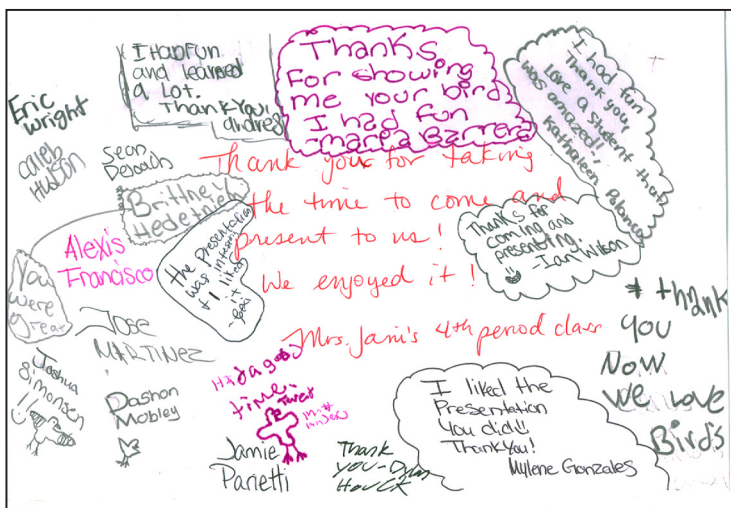 I Had Fun
and learned
a Lot.
Thank You,
andres
Thanks
For showing
me your bird
I had fun
-maria Barrera
I had fun
Thank you,
Love a student that
was amazed!!
Kathaleen Palomeo
Eric
Wright
Caleb
Hudson
Sean
Brittney
Hedetniemi
Thank you for taking
the time to come and
present to us!
We enjoyed it!
Mrs. Jani's 4th period class
Alexis
Francisco
The Presentation
was interest
& I liked
it
Thanks for
coming and
presenting.
-Ian Wilson
You
were
great
Jose
MARTINEZ
Joshua
Simonsen
Dashon
Mobley
time
Tweet
Jamie
Parietti
Thank
you-Dylan
Houck
I liked the
Presentation
You did!!
Thank You!
Mylene Gonzales
* thank
you
Now
we love
Birds